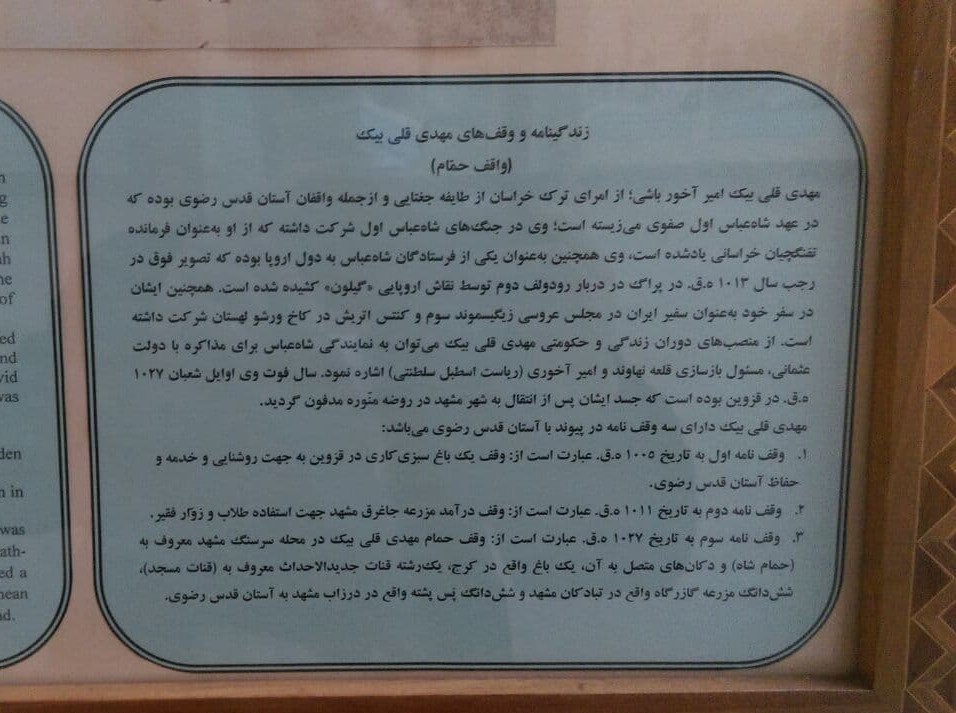 زندگینامه و وقف‌های مهدی قلی بیک
(واقف حمّام)
مهدی قلی بیک امیر آخور باشی؛ از امرای ترک خراسان از طایفه جغتایی و ازجمله واقفان آستان قدس رضوی بوده که
در عهد شاه‌عباس اول صفوی می‌زیسته است؛ وی در جنگ‌های شاه‌عباس اول شرکت داشته که از او به‌عنوان فرمانده
تفنگچیان خراسانی یادشده است، وی همچنین به‌عنوان یکی از فرستادگان شاه‌عباس به دول اروپا بوده که تصویر فوق در
رجب سال ۱۰۱۳ ه.ق. در پراگ در دربار رودولف دوم توسط نقاش اروپایی «گیلون» کشیده شده است. همچنین ایشان
در سفر خود به‌عنوان سفیر ایران در مجلس عروسی زیگیسموند سوم و کنتس اتریش در کاخ ورشو لهستان شرکت داشته
است. از منصب‌های دوران زندگی و حکومتی مهدی قلی بیک می‌توان به نمایندگی شاه‌عباس برای مذاکره با دولت
عثمانی، مسئول بازسازی قلعه نهاوند و امیر آخوری (ریاست اسطبل سلطنتی) اشاره نمود. سال فوت وی اوایل شعبان ۱۰۲۷
ه.ق. در قزوین بوده است که جسد ایشان پس از انتقال به شهر مشهد در روضه منّوره مدفون گردید.
مهدی قلی بیک دارای سه وقف نامه در پیوند با آستان قدس رضوی می‌باشد:
۱. وقف نامه اول به تاریخ ۱۰۰۵ ه.ق. عبارت است از: وقف یک باغ سبزی‌کاری در قزوین به جهت روشنایی و خدمه و
حفاظ آستان قدس رضوی.
۲. وقف نامه دوم به تاریخ ۱۰۱۱ ه.ق. عبارت است از: وقف درآمد مزرعه جاغرق مشهد جهت استفاده طلاب و زوّار فقیر.
۳. وقف نامه سوم به تاریخ ۱۰۲۷ ه.ق. عبارت است از: وقف حمام مهدی قلی بیک در محله سرسنگ مشهد معروف به
(حمام شاه) و دکان‌های متصل به آن، یک باغ واقع در کرج، یک‌رشته قنات جدیدالاحداث معروف به (قنات مسجد)،
شش‌دانگ مزرعه گازرگاه واقع در تبادکان مشهد و شش‌دانگ پَس پشته واقع در درزاب مشهد به آستان قدس رضوی.